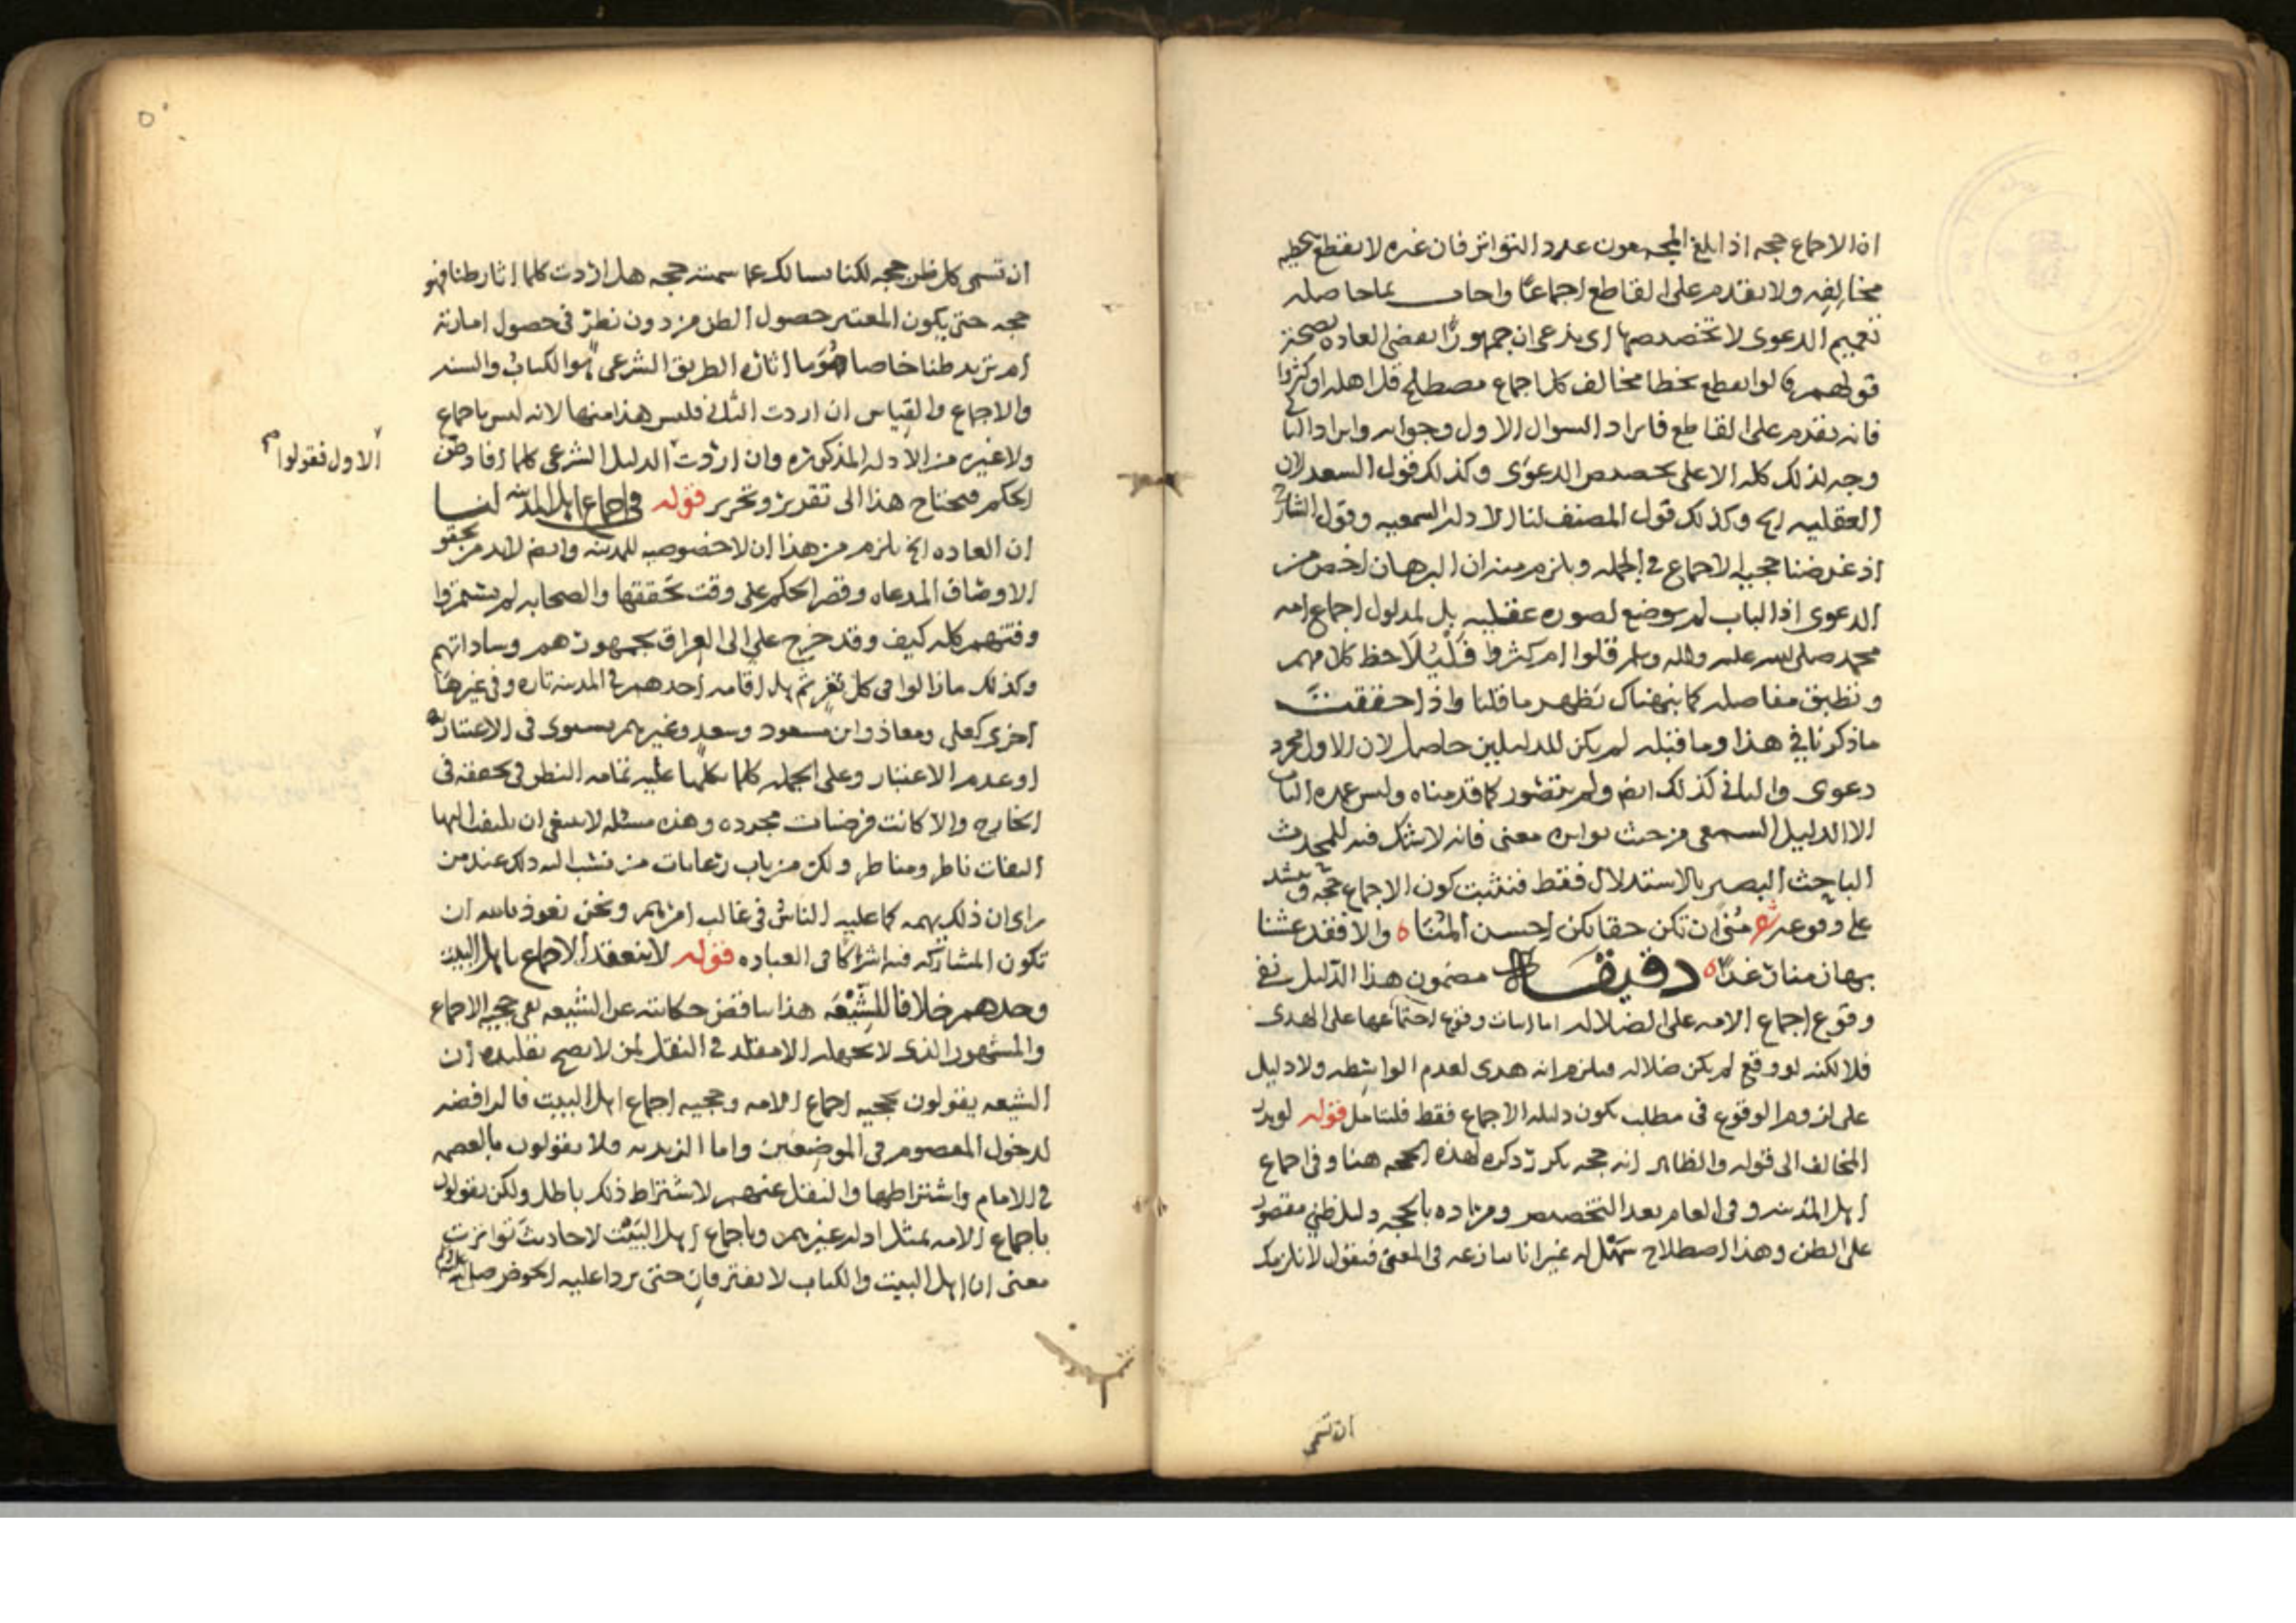 ان الاجماع حجه اذا بلغ المجمعون عدد التواتر فان غيره لا يقطع بخطيه
مخالفه ولا يقدم على القاطع اجماعا واجاب بما حاصله
تعميم الدعوى لا تخصيصها اى يدعى ان جمهورًا تقضى العاده بصحة
قولهم قالوا يقطع بخطا مخالف كل اجماع مصطلح قل اهله او كثروا
فانه يقدم على القاطع فايراد السوال الاول وجوابه وايراد الثانى
وجه لذلك كله الا على تخصيص الدعوى وكذلك قول السعد لان
العقليه الخ وكذلك قول المصنف لنا الادله السمعيه وقول الشارح
اذ غرضنا حجيه الاجماع فى الجمله ويلزم منه ان البرهان اخص من
الدعوى اذ الباب لم يوضع لصوره عقليه بل لمدلول اجماع امه
محمد صلى الله عليه واله وسلم قلوا ام كثروا فليلاحظ كلامهم
وتطبيق مفاصله كما ينبهناك تظهر ما قلنا واذا حققت
ما ذكرنا فى هذا وما قبله لم يكن للدليلين حاصل لان الاول مجرد
دعوى والثانى كذلك ايضا ولم يتصور كما قدمناه وليس عمده الباب
الا الدليل السمعى من حيث تواتره معنى فانه لا شك فيه للمحدث
الباحث البصير بالاستدلال فقط فنثبت كون الاجماع حجه
على وقوعه شعر منًى ان تكن حقا تكن احسن المنا ه والا فقد عشنا
بها زمنا رغدا ه دقيقه مضمون هذا الدليل نفى
وقوع اجماع الامه على الضلاله اما اثبات وقوع اجتماعها على الهدى
فلا لكنه لو وقع لم يكن ضلاله فيلزم انه هدى لعدم الواسطه ولا دليل
على لزوم الوقوع فى مطلب يكون دليله الاجماع فقط فليتامل قوله لويدر
المخالف الى قوله والظاهر انه حجه تكرر ذكره لهذه الحجه هنا وفى اجماع
اهل المدينه وفى العام بعد التخصيص ومراده بالحجه دليل ظنى مقصور
على الظن وهذا اصطلاح سهل له غير انا ننازعه فى المعنى فنقول لا نلزمك
ان تسمى
ان تسمى كل ظن حجه لكنا نسالك عما سمته حجه هل اردت كلما اثار ظنا فهو
حجه حتى يكون المعتبر حصول الظن من دون نظر فى حصول امارته
ام تريد ظنا خاصا هو ما اثاره الطريق الشرعى هو الكتاب والسنه
والاجماع والقياس ان اردت الثانى فليس هذا منها لانه ليس باجماع
ولا غيره من الادله المذكوره وان اردت الدليل الشرعى كلما افاد ظن
الاول فقولوا
الحكم فيحتاج هذا الى تقرير وتحرير قوله فى اجماع اهل المدينه لنا
ان العاده الخ يلزم من هذا ان لا خصوصيه للمدينه وايضا لابد من تحقق
الاوصاف المدعاه وقصر الحكم على وقت تحققها والصحابه لم يستمروا
وقتهم كله كيف وقد خرج على الى العراق بجمهورهم وساداتهم
وكذلك ما زالوا فى كل ثغر ثم هل اقامه احدهم فى المدينه تاره وفى غيرها
اخرى كعلى ومعاذ وابن مسعود وسعد وغيرهم يستوى فى الاعتبار به
او عدم الاعتبار وعلى الجمله كلما تكلمنا عليه ثمامه النظر فى تحققه فى
الخارج والا كانت فرضيات مجرده وهذه مسئله لا ينبغى ان يلتفت اليها
التفات ناظر ومناظر ولكن من باب رعايات من نسب اليه ذلك عند من
راى ان ذلك يهمه كما عليه الناس فى غالب امرهم ونحن نعوذ بالله ان
تكون المشاركه فيه اشراكا فى العباده قوله لا ينعقد الاجماع باهل البيت
وحدهم خلافا للشيعه هذا يناقض حكايته عن الشيعه نفى حجيه الاجماع
والمشهور الذى لا يجهله الا مقلد فى النقل لمن لا يصح تقليده ان
الشيعه يقولون بحجيه اجماع الامه وحجيه اجماع اهل البيت فالرافضه
لدخول المعصوم فى الموضعين واما الزيديه فلا يقولون بالعصمه
فى الامام واشتراطها والنقل عنهم لاشتراط ذلك باطل ولكن يقولون
باجماع الامه بمثل ادله غيرهم وباجماع اهل البيت لاحاديث تواترت
معنى ان اهل البيت والكتاب لا يفترقان حتى يردا عليه الحوض